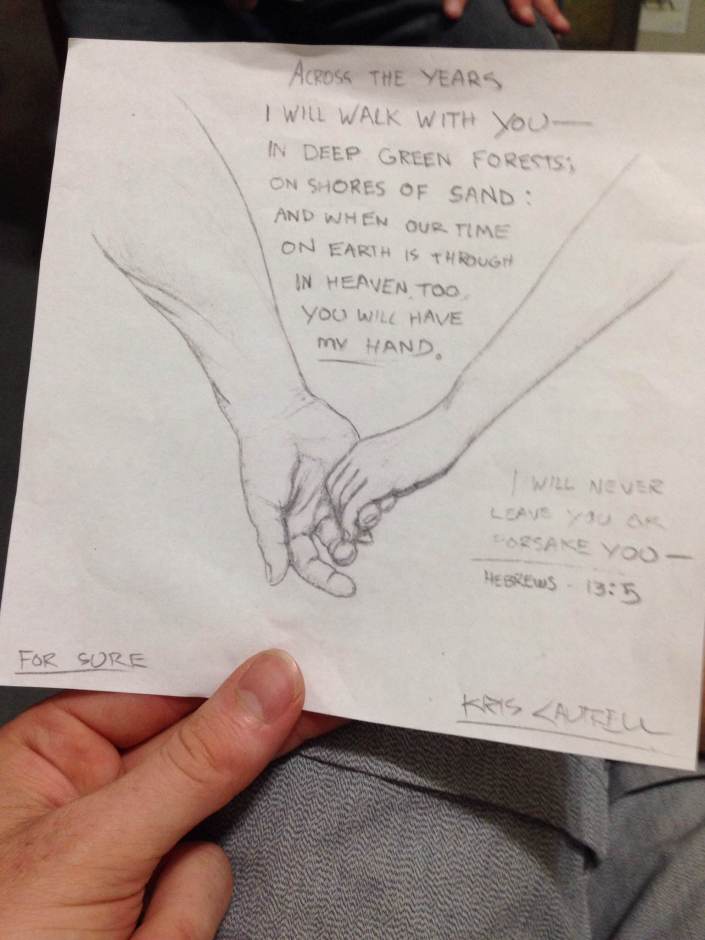 ACROSS THE YEARS
I WILL WALK WITH YOU—
IN DEEP GREEN FORESTS;
ON SHORES OF SAND:
AND WHEN OUR TIME
ON EARTH IS THROUGH
IN HEAVEN, TOO,
YOU WILL HAVE
MY HAND.
I WILL NEVER
LEAVE YOU OR
FORSAKE YOU—
HEBREWS - 13:5
FOR SURE
KRIS